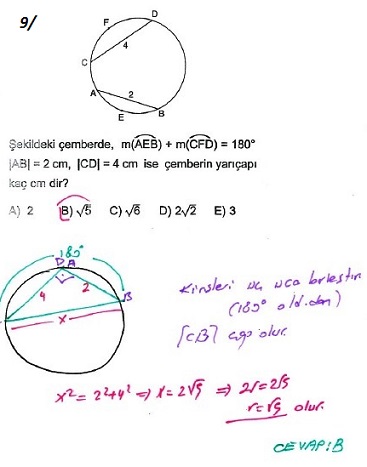 9/
F
D
C
4
A
2
B
E
Şekildeki çemberde, m(AEB) + m(CFD) = 180°
|AB| = 2 cm, |CD| = 4 cm ise çemberin yarıçapı
kaç cm dir?
A) 2 B) √5 C) √6 D) 2√2 E) 3
180°
D A
4 2 B
x
Kirişleri uç uca birleştir.
(180° old.dan)
[CB] çap olur.
x² = 2²+4² ⇒ x = 2√5 ⇒ 2r = 2√5
r = √5 olur.
CEVAP: B